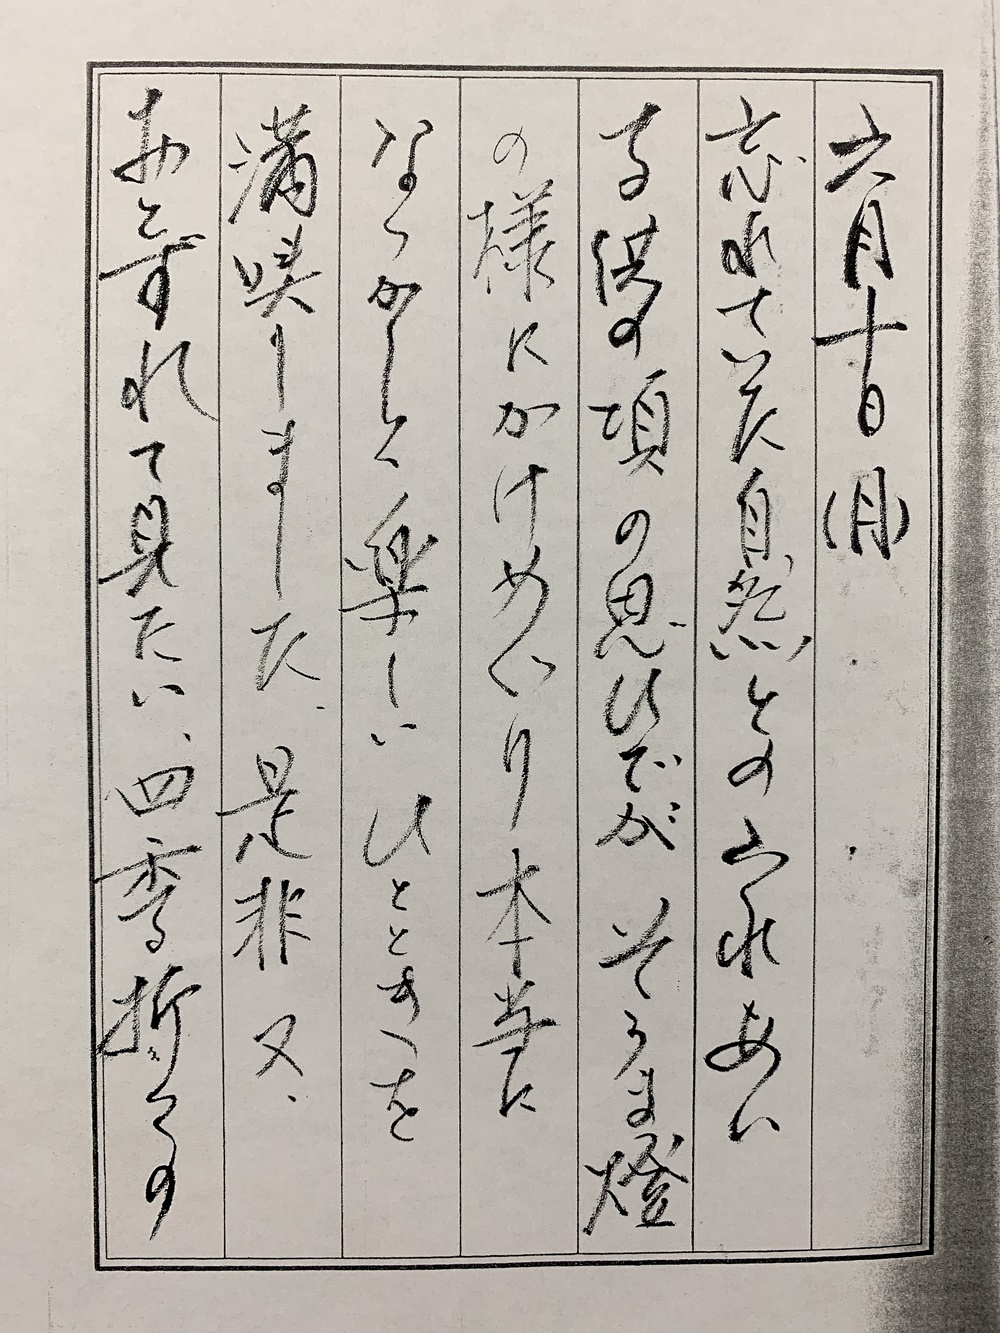 六月十日(月)
忘れていた自然とのふれあい
子供の頃の思ひでが そうま燈
の様にかけめぐり本当に
なつかしく 楽しい ひとときを
満喫りました、是非 又、
おとずれて見たい、四季折々の